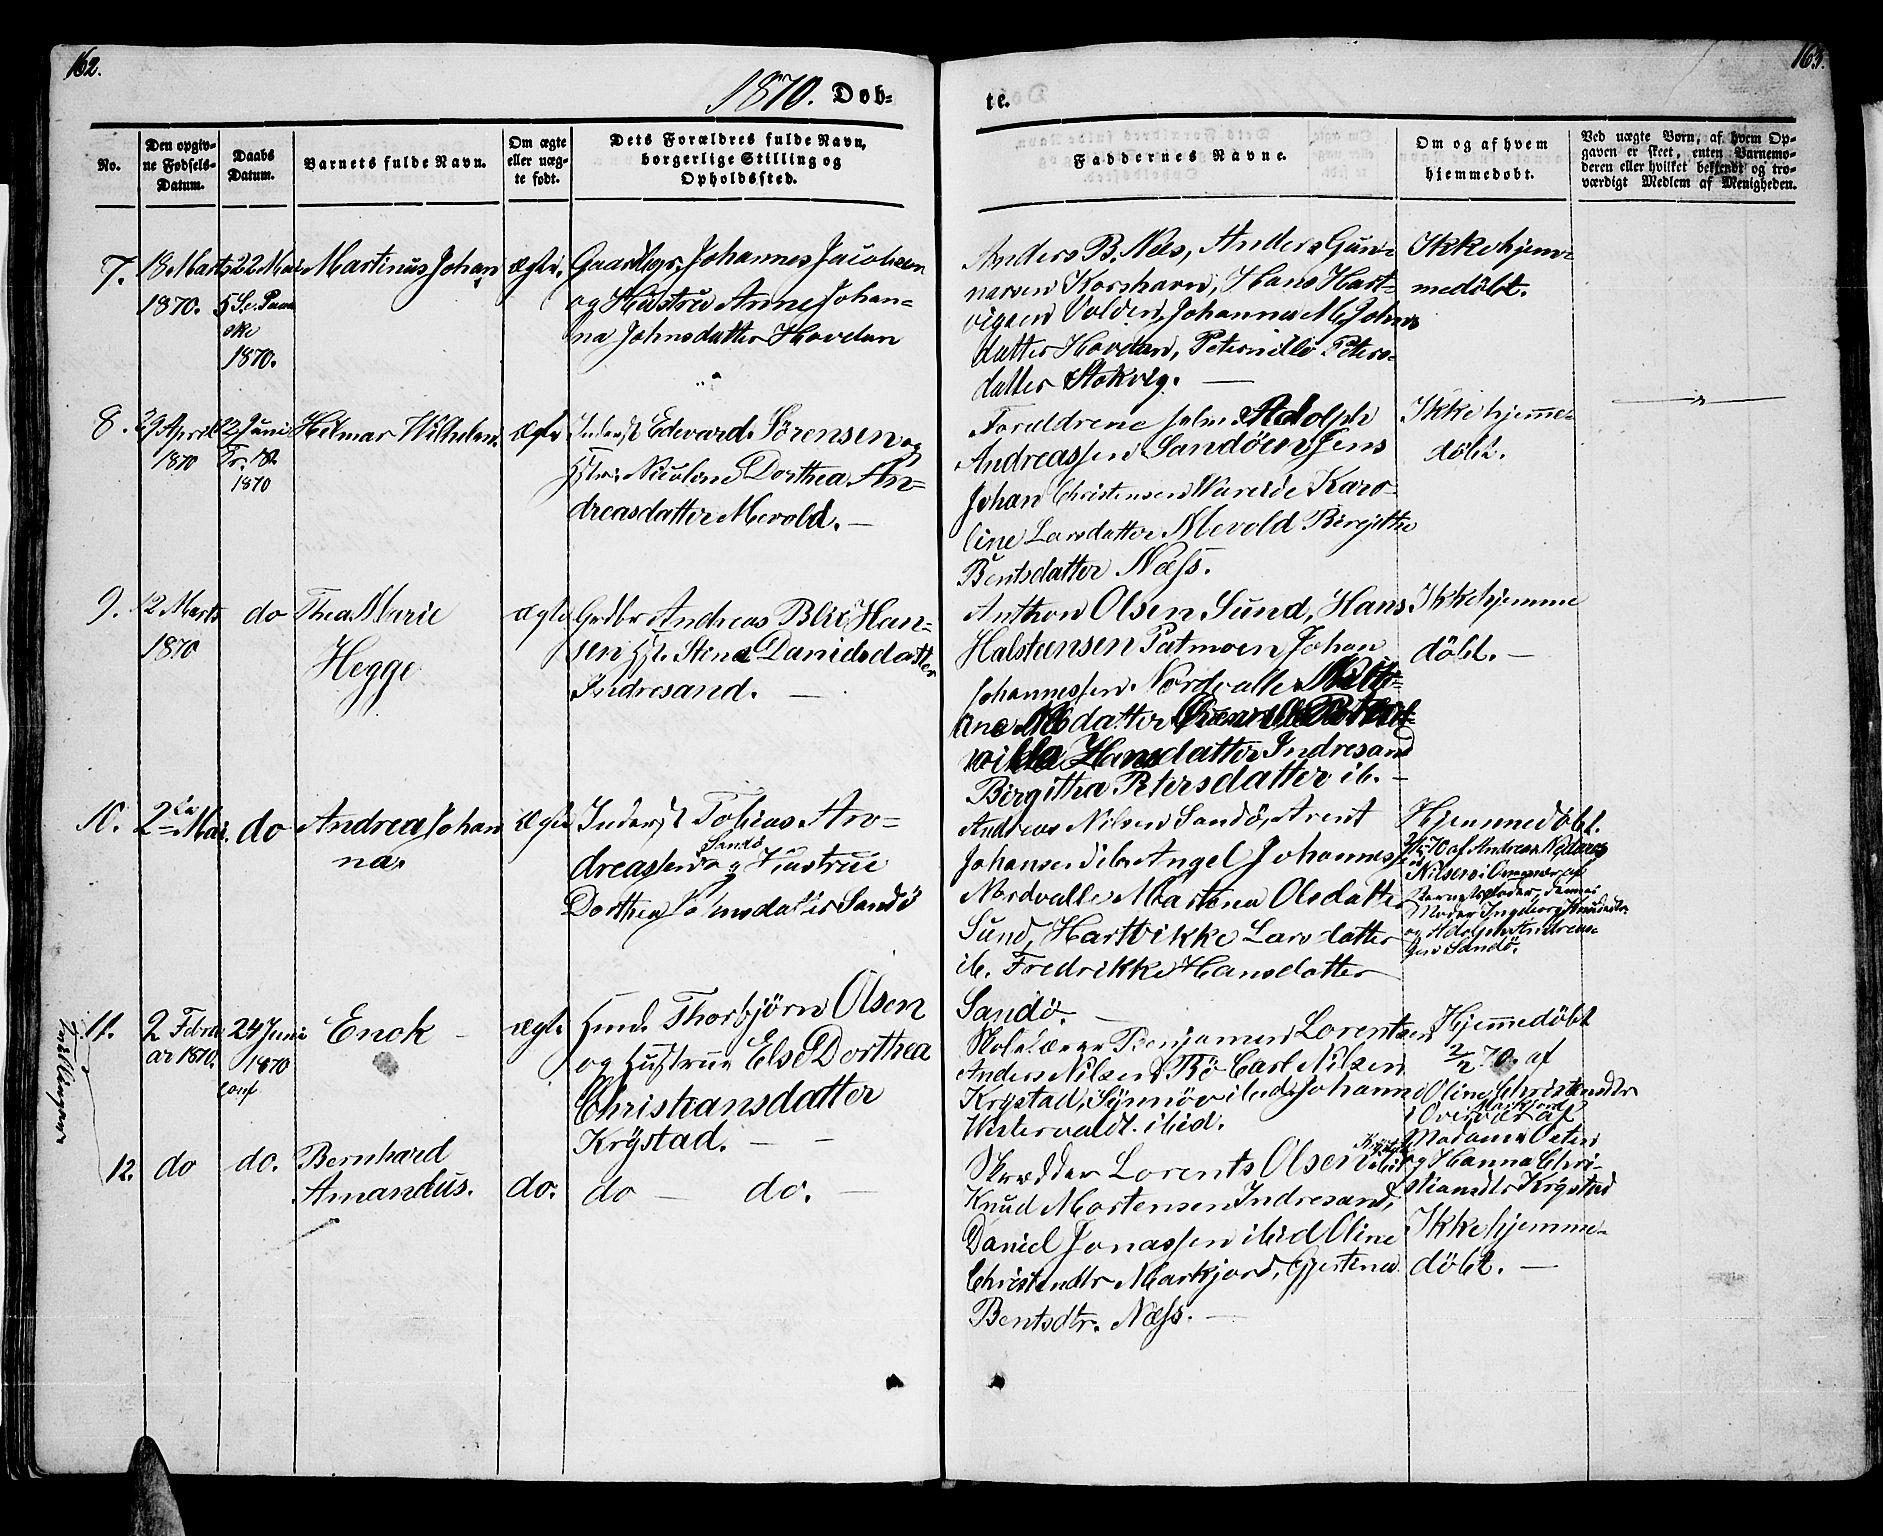 162.
163.
1870. Døb-
te.
No.
Den opgiv-
ne Fødsels-
Datum.
Daabs
Datum.
Barnets fulde Navn.
Om ægte
eller uæg-
te født.
Dets Forældres fulde Navn,
borgerlige Stilling og
Opholdssted.
Faddernes Navne.
Om og af hvem
hjemmedøbt.
Ved uægte Børn, af hvem Op-
gaven er skeet, enten Barnemo-
deren eller hvilket bekjendt og tro-
værdigt Medlem af Menigheden.
7.
18 Marts
1870.
22 Mai
5 S. e. Paa-
ske
1870.
Martinus Johan
ægte.
Gaardbgr. Johannes Jacobsen
og Hustru Anne Johan-
na Johnsdatter Hovden
Anders B. Næs, Anders Gun-
narsen Korshavn, Hans Hart-
vigsen Volden, Johanna M. Johns
datter Hovden, Peternille Peters-
datter Stokvig. —
Ikke hjem-
medöbt.
8.
29 April
1870
12 Juni
Tr. S.
1870
Hilmar Wilhelm.
ægte
Inderst Edvard Sörensen og
Hstr. Nicoline Dorthea An-
dreasdatter Mevold. —
Foreldrene selv Adolph
Andreassen Sandöen Jens
Johan Christensen Karo-
line Larsdatter Mevold Birgitte
Bentsdatter Næss.
Ikke hjemme-
döbt.
9.
12 Marts
1870
do
Thea Marie
Hegge
ægte
Grdbr Andreas Blix Han-
sen Hst. Stina Danielsdatter
Indresand. —
Anthon Olsen Sund, Hans
Halsteensen Patmoen Johan
Johannessen Nordvalle
datter
Hansdatter Indresand
Birgitha Petersdatter ib. —
Ikke hjemme
döbt. —
10.
2den Mai.
do
Andrea Johan
na.
ægte
Inderst Tobias An-
Sandö
dreassen og Hustrue
Dorthea Johnsdatter Sandö
Andreas Nilsen Sandö, Arent
Johansen ib. Angel Johannessen
Nordvalle Martina Olsdatter
Sund, Hartvikke Larsdatter
ib. Fredrikke Hansdatter
Sandö. —
Hjemmedöbt.
70 af Andreas
Nilsen
Barnets Fader, dennes
Moder Ingeborg Knudsdtr.
og Adolph Andreas-
sen Sandö.
Tvillinger
11.
2 Febru
ar 1870.
24 Juni
1870
conf
Enok —
ægte
Hmd. Thorbjörn Olsen
og Hustrue Else Dorthea
Christiansdatter
Krÿstad. — —
Skolelærer Benjamin Lorentsen
Anders Nilsen Bö Carl Nilsen
Krystad, Synnöv ibid. Johanna
Westervaldt. ibid.
Hjemmedöbt
2/2 70. af
Oline Christensdtr
Markjord
Madame
og Hanna Chri-
stiansdtr Krÿstad
12.
do
do.
Bernhard
Amandus.
do.
do — do. —
Skrædder Lorents Olsen
Knud Mortensen Indresand,
Daniel Jonassen ibid Oline
Christensdtr Markjord, Gjertina
Bentsdtr. Næss. —
Ikke hjemme-
döbt. —